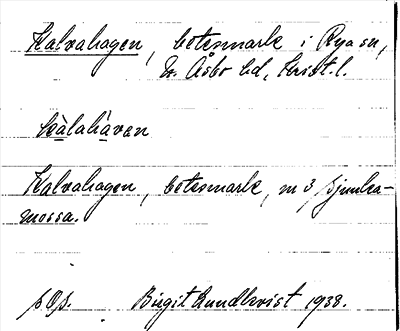 Kalvahagen, betesmark i Rya sn,
N. Åsbo hd, Krist. l.
kàlahàven
Kalvahagen, betesmark, m 3, Sjunka-
mossa.
Birgit Lundkvist 1938.